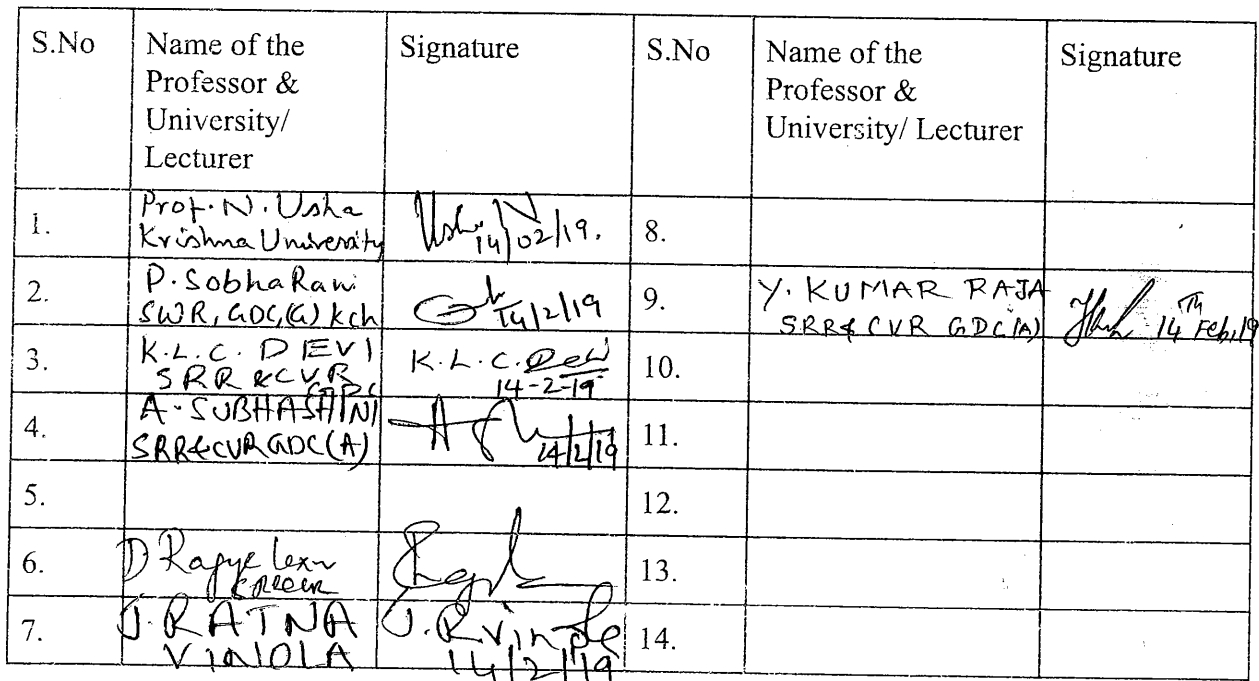 S.No Name of the Professor & University/ Lecturer Signature S.No Name of the Professor & University/ Lecturer Signature
1. Prof. N. Usha Krishna University 14/02/19. 8.
2. P. Sobha Rani SWR, GDC, (G) kch 14/2/19 9. Y. KUMAR RAJA SRR & CVR GDC(A) 14th Feb, 19
3. K.L.C. DEVI SRR & CVR K.L.C. Devi 14-2-19 10.
4. A. SUBHASHINI SRR & CVR GDC(A) 14/2/19 11.
5. 12.
6. D 13.
7. J. RATNA VINOLA 14/2/19 14.